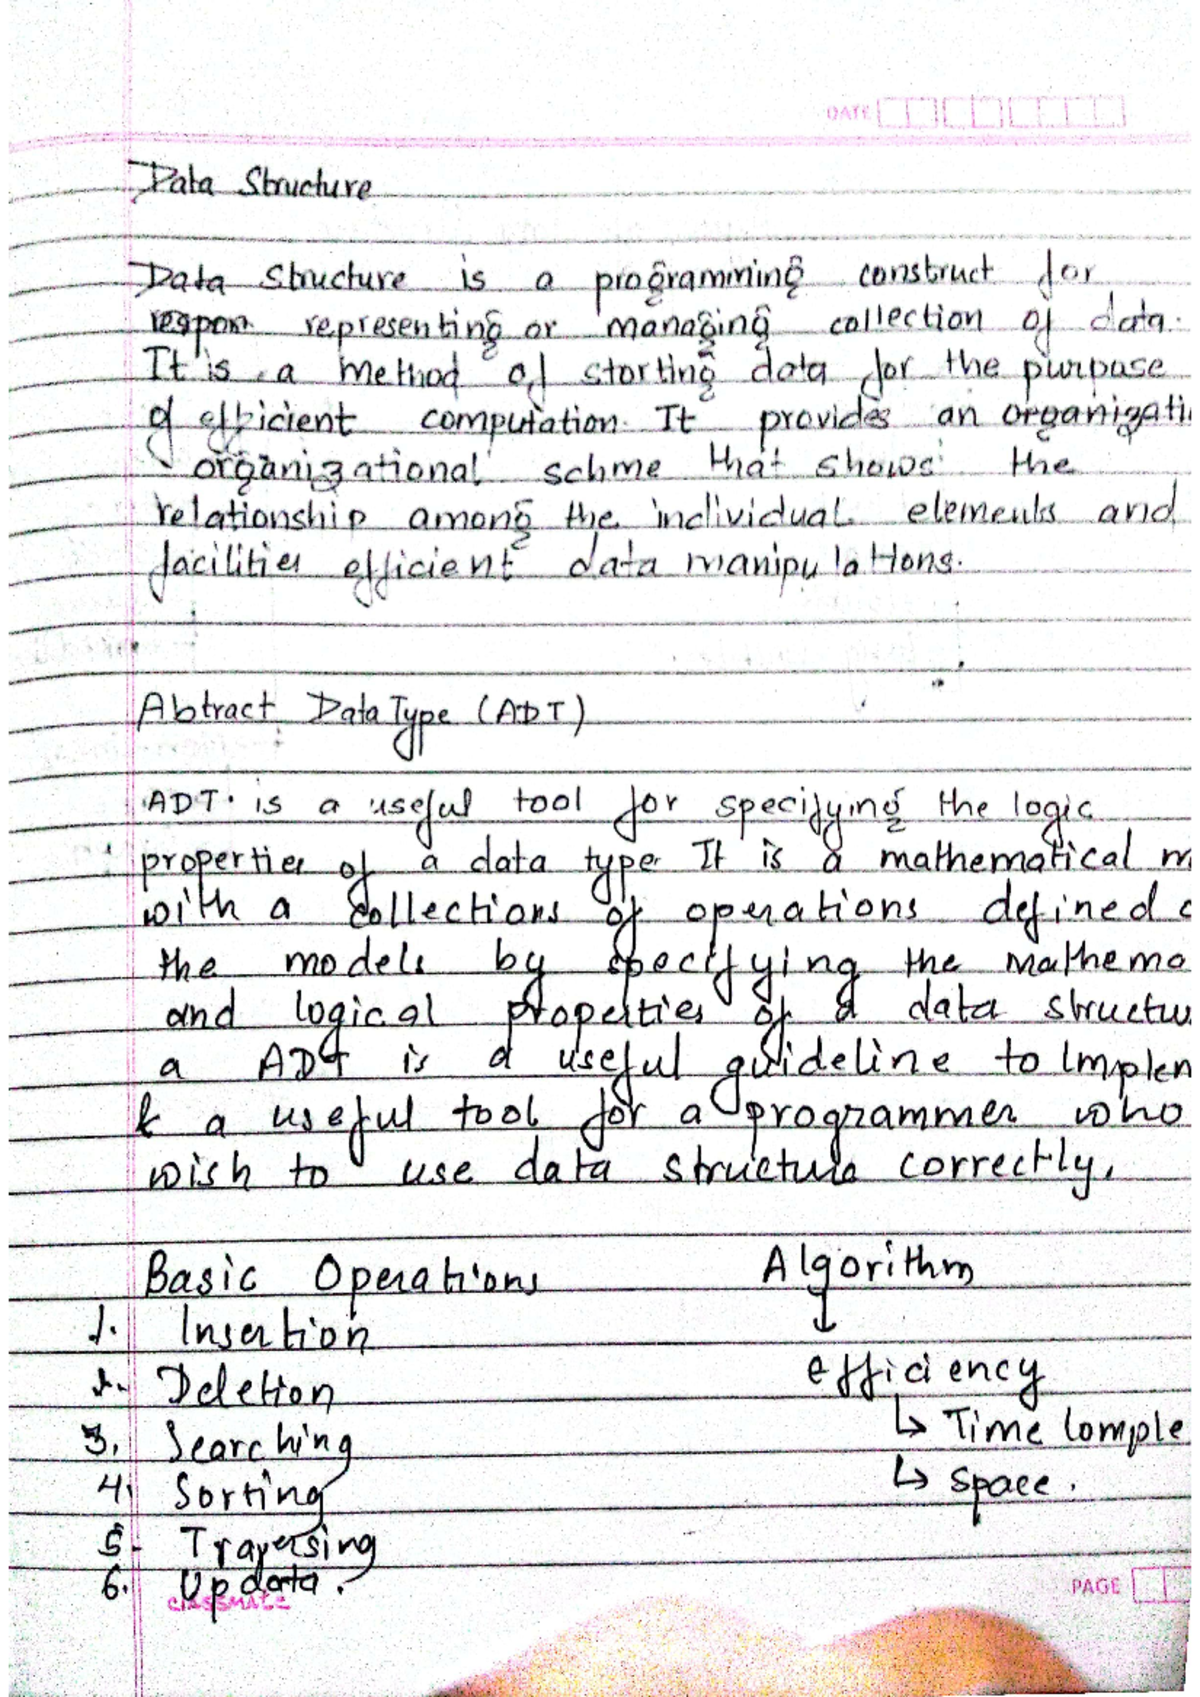 DATE
Data Structure
Data Structure is a programming construct for
representing or managing collection of data.
It is a method of storting data for the purpuse
of efficient computation. It provides an organizati
organizational schme that shows the
relationship among the individual elements and
facilities efficient data manipulations.
Abtract Data Type (ADT)
ADT. is a useful tool for specifying the logic
properties of a data type It is a mathematical m
with a collections of operations defined o
the models by specifying the mathema
and logical properties of a data structu
a ADT is a useful guideline to Implem
& a useful tool for a programmer who
wish to use data structure correctly.
Basic Operations Algorithm
↓
1. Insertion
2. Deletion efficiency
3. Searching ↳ Time Comple
4. Sorting ↳ space.
5. Traversing
6. Updata.
classmate PAGE